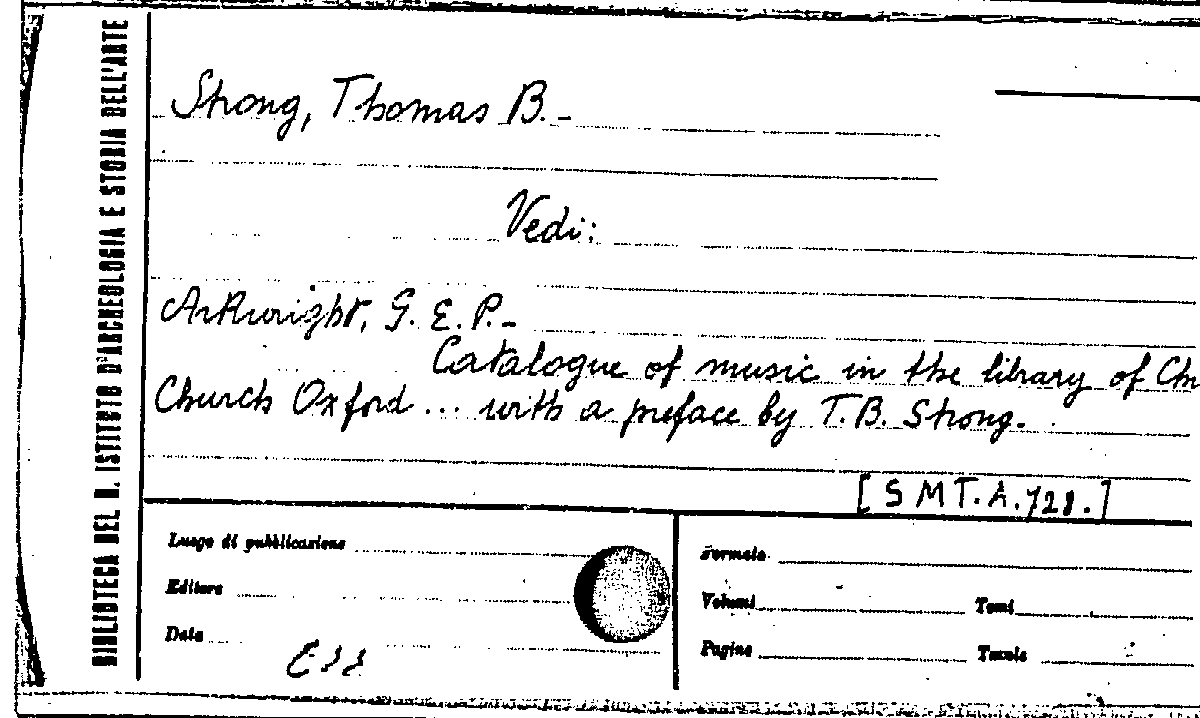 BIBLIOTECA DEL R. ISTITUTO D'ARCHEOLOGIA E STORIA DELL'ARTE
Strong, Thomas B. -
Vedi:
Arkwright, G. E. P. -
Catalogue of music in the library of Ch
Church Oxford ... with a preface by T. B. Strong.
[SMT. A. 728.]
Luogo di pubblicazione
Editore
Data
Formato
Volumi Tomi
Pagine Tavole